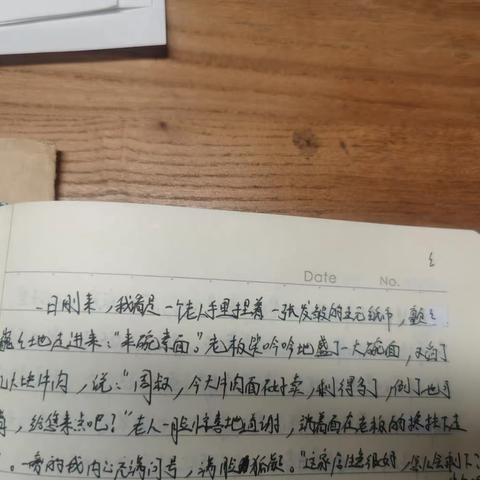 Date No.
一日刚来，我看见一个老人手里捏着一张发皱的五元纸巾，颤
地走进来："来碗素面。"老板笑吟吟地盛了一大碗面，又舀了
几大块牛肉，说："周叔，今天牛肉面不好卖，剩得多了，倒了也可
，给您来点吧？"老人一脸惊喜地道谢，端着面在老板的搀扶下走
。一旁的我内心充满问号，满脸狐疑。"这家店生意很好，怎么会剩下